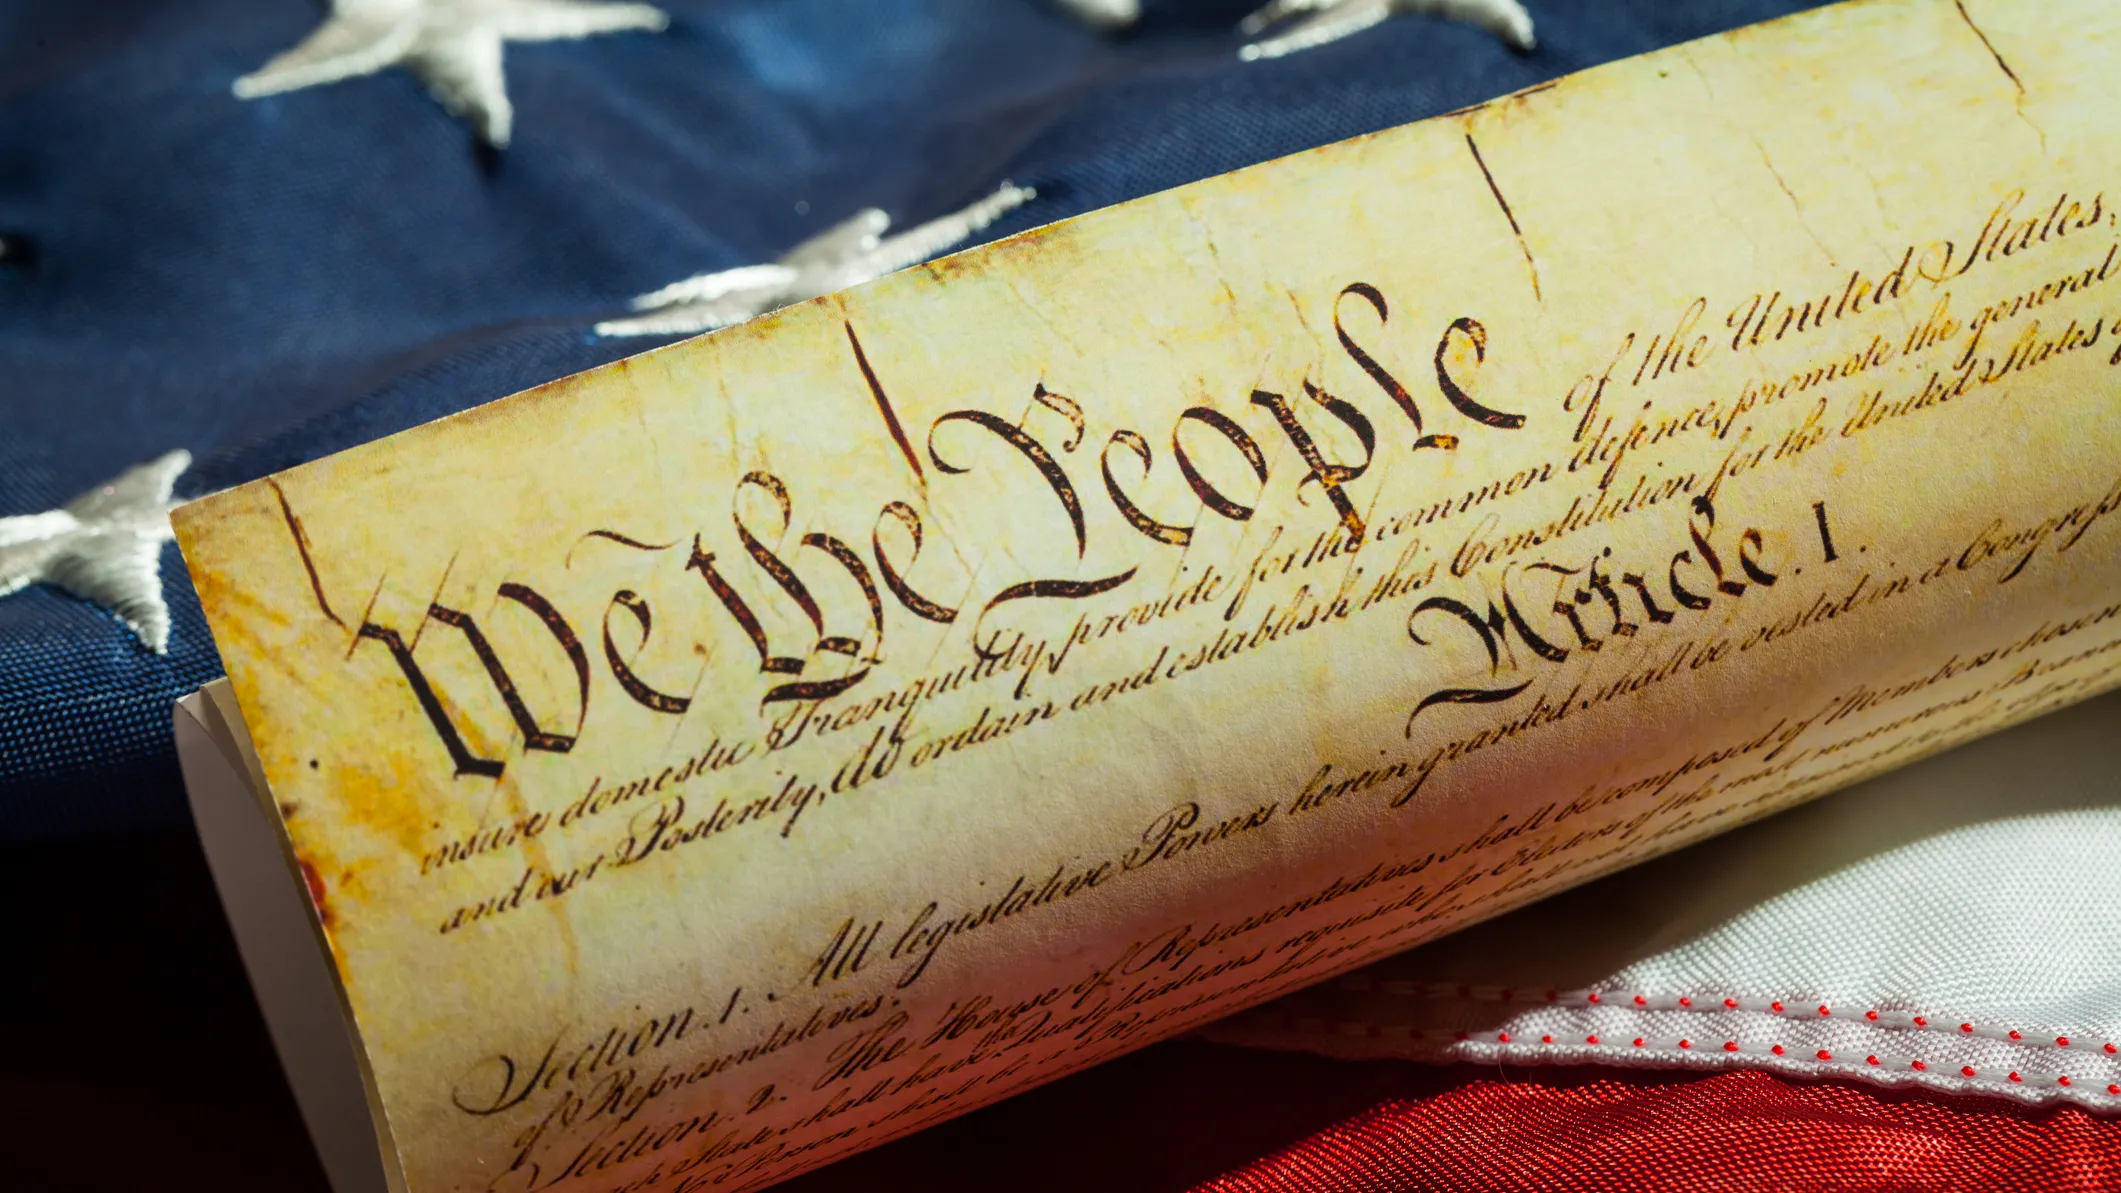 We the People of the United States,
insure domestic Tranquility, provide for the common defence, promote the general
and our Posterity, do ordain and establish this Constitution for the United States
Article. I.
Section. 1. All legislative Powers herein granted shall be vested in a Congress
of Representatives.
Section. 2. The House of Representatives shall be composed of Members chosen
State shall have the Qualifications requisite for Electors of the most numerous
No Person shall be a Representative who shall not have